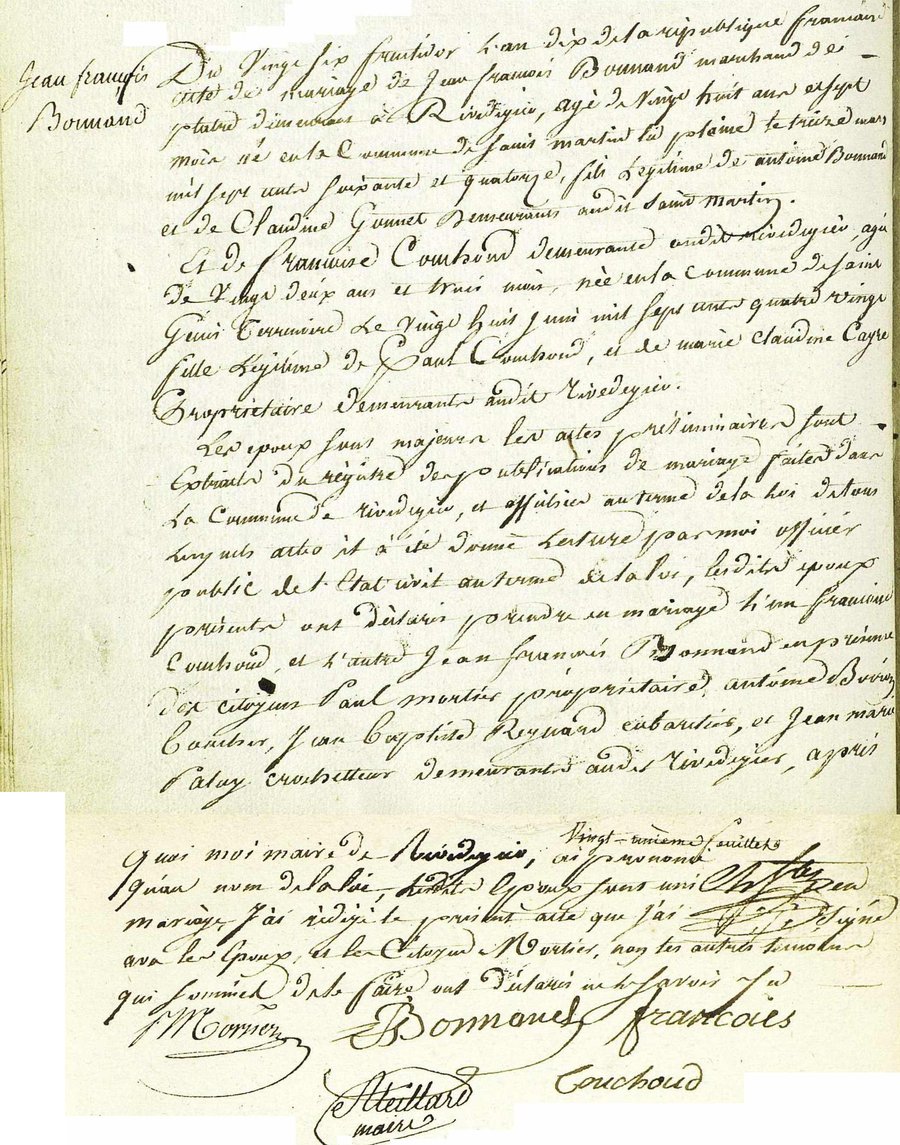 Jean françois
Bonnand
Du Vingt six fructidor L'an dix de la république française
acte de mariage de Jean françois Bonnand marchand de
platre demeurant à Rivedegier, agé de Vingt huit ans et sept
mois né en la Commune de saint martin la plaine le treize mars
mil sept cents soixante et quatorze, fils Legitime de antoine Bonnand
et de Claudine Gonnet Demeurants audit Saint martin.
Et de francoise Couchoud demeurante audit Rivedegier, agée
de Vingt deux ans et trois mois, née en la Commune de saint
Genis Terrenoire Le Vingt huit juin mil sept cents quatre vingt
fille Légitime de Paul Couchoud, et de marie Claudine Cayre
Propriétaire demeurants audit rivedegier.
Les epoux sont majeurs les actes préliminaires sont
Extraits du régistre des publications de mariage faites dans
La Commune de rivedegier, et affichés au terme de la loi de tous
Lesquels actes il à été donné Lecture par moi officier
public de l'Etat civil au terme de la loi, lesdits epoux
présents ont déclaré prendre en mariage L'un francoise
Couchoud, et L'autre Jean francois Bonnand en présence
des citoyens Paul mortier propriétaire, antoine
Jean Baptiste Reynard cabartier, et Jean marie
crocheteur demeurants audit rivedegier, après
Vingt-unième feuillets
quoi moi maire de Rivedegier, ai prononcé
qu'au nom de la loi, lesdits Epoux sont unis en
mariage, J'ai rédigé le présent acte que j'ai signé
avec les Epoux, et le Citoyen Mortier, non les autres temoins
qui sommés de le faire ont déclaré ne le savoir
Mortier Bonnand francoies
Couchoud
maire